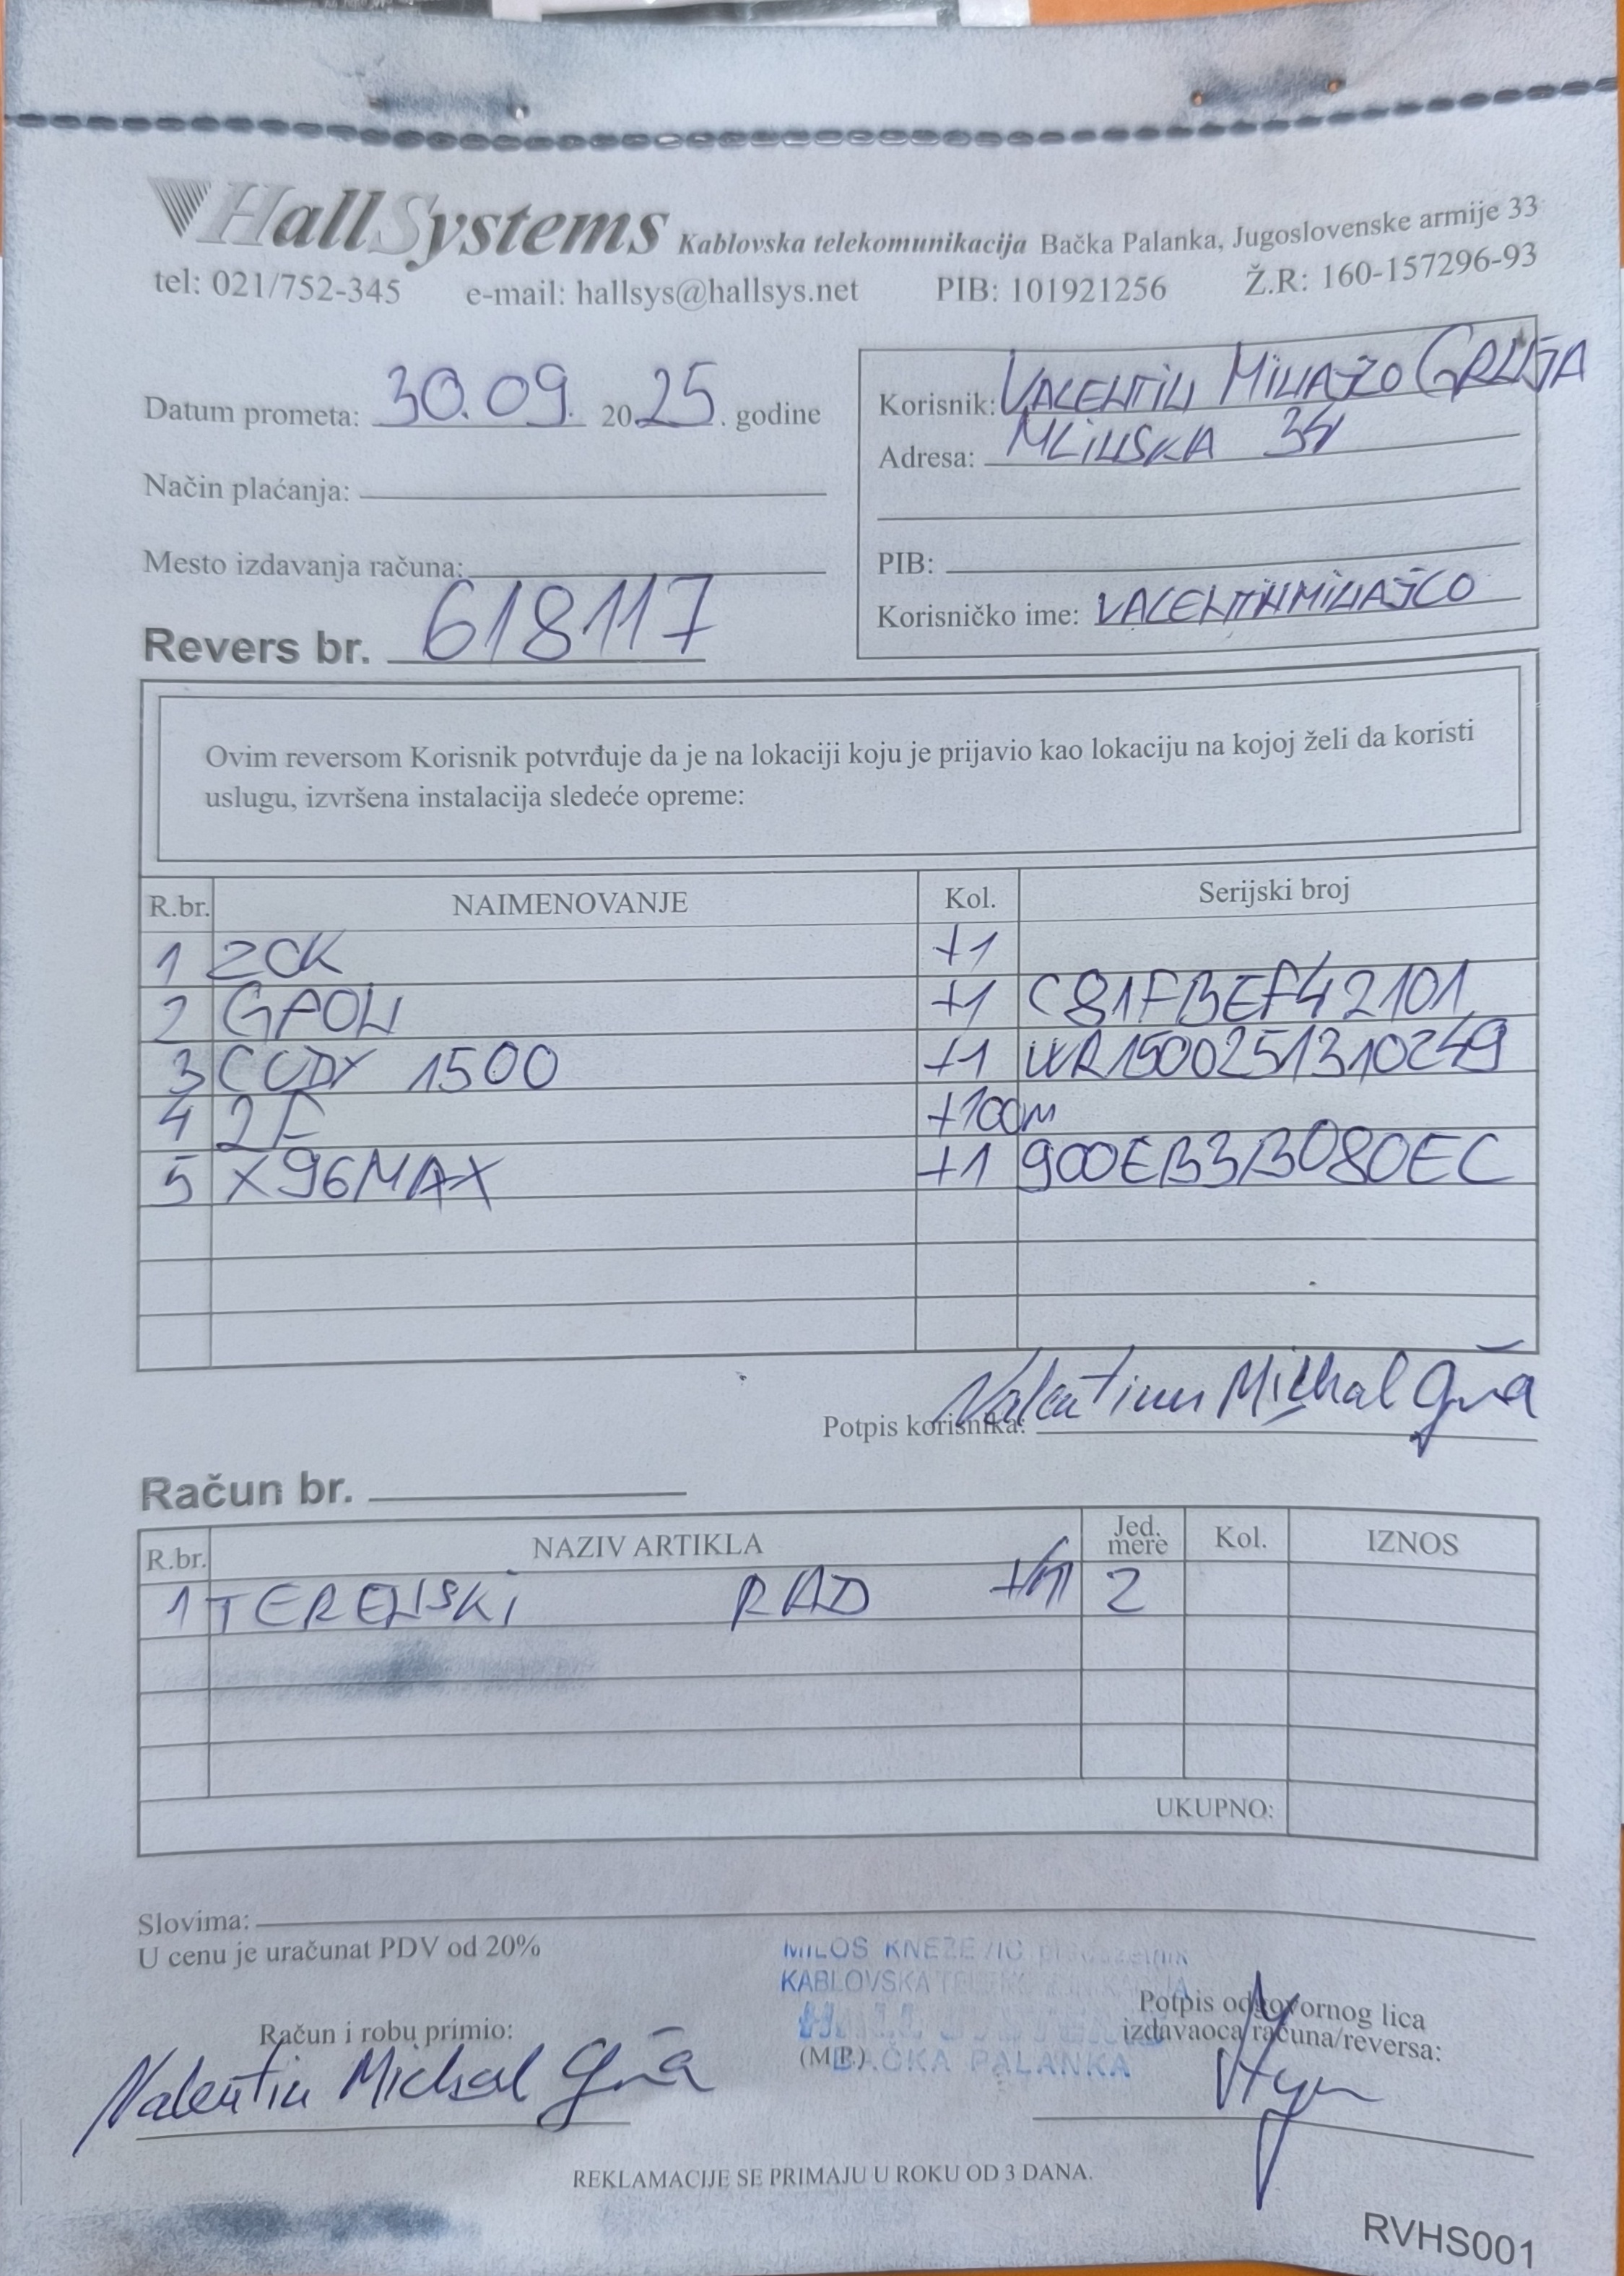 HallSystems Kablovska telekomunikacija Bačka Palanka, Jugoslovenske armije 33
tel: 021/752-345 e-mail: hallsys@hallsys.net PIB: 101921256 Ž.R: 160-157296-93
Datum prometa: 30.09. 2025. godine
Način plaćanja:
Mesto izdavanja računa:
Revers br. 618117
Korisnik: VALENTIN
Adresa: MLINSKA
PIB:
Korisničko ime:
Ovim reversom Korisnik potvrđuje da je na lokaciji koju je prijavio kao lokaciju na kojoj želi da koristi
uslugu, izvršena instalacija sledeće opreme:
R.br. NAIMENOVANJE Kol. Serijski broj
1 ZOK +1
2 GPON +1 C81FBEF42101
3 CUDY 1500 +1 WR1500251310249
4 +100m
5 X96MAX +1 900EB3B080EC
Potpis korisnika: Valentin Michal
Račun br.
R.br. NAZIV ARTIKLA Jed. mere Kol. IZNOS
1 TERENSKI RAD 2
UKUPNO:
Slovima:
U cenu je uračunat PDV od 20%
MILOŠ KNEŽEVIĆ preduzetnik
KABLOVSKA TELEKOMUNIKACIJA
HALL SYSTEMS
BAČKA PALANKA
Račun i robu primio:
(M.P.)
Potpis odgovornog lica
izdavaoca računa/reversa:
Valentin Michal
REKLAMACIJE SE PRIMAJU U ROKU OD 3 DANA.
RVHS001